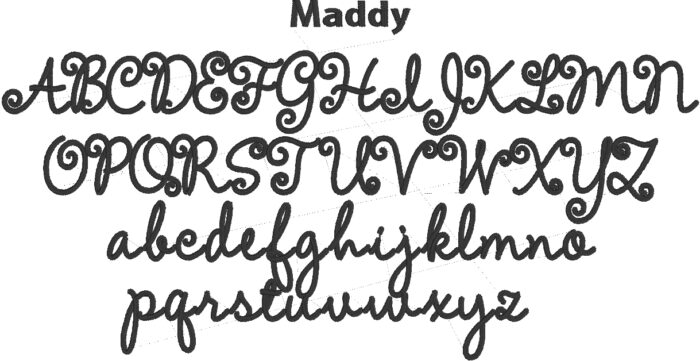 Maddy
ABCDEFGHIJKLMN
OPQRSTUVWXYZ
abcdefghijklmno
pqrstuvwxyz